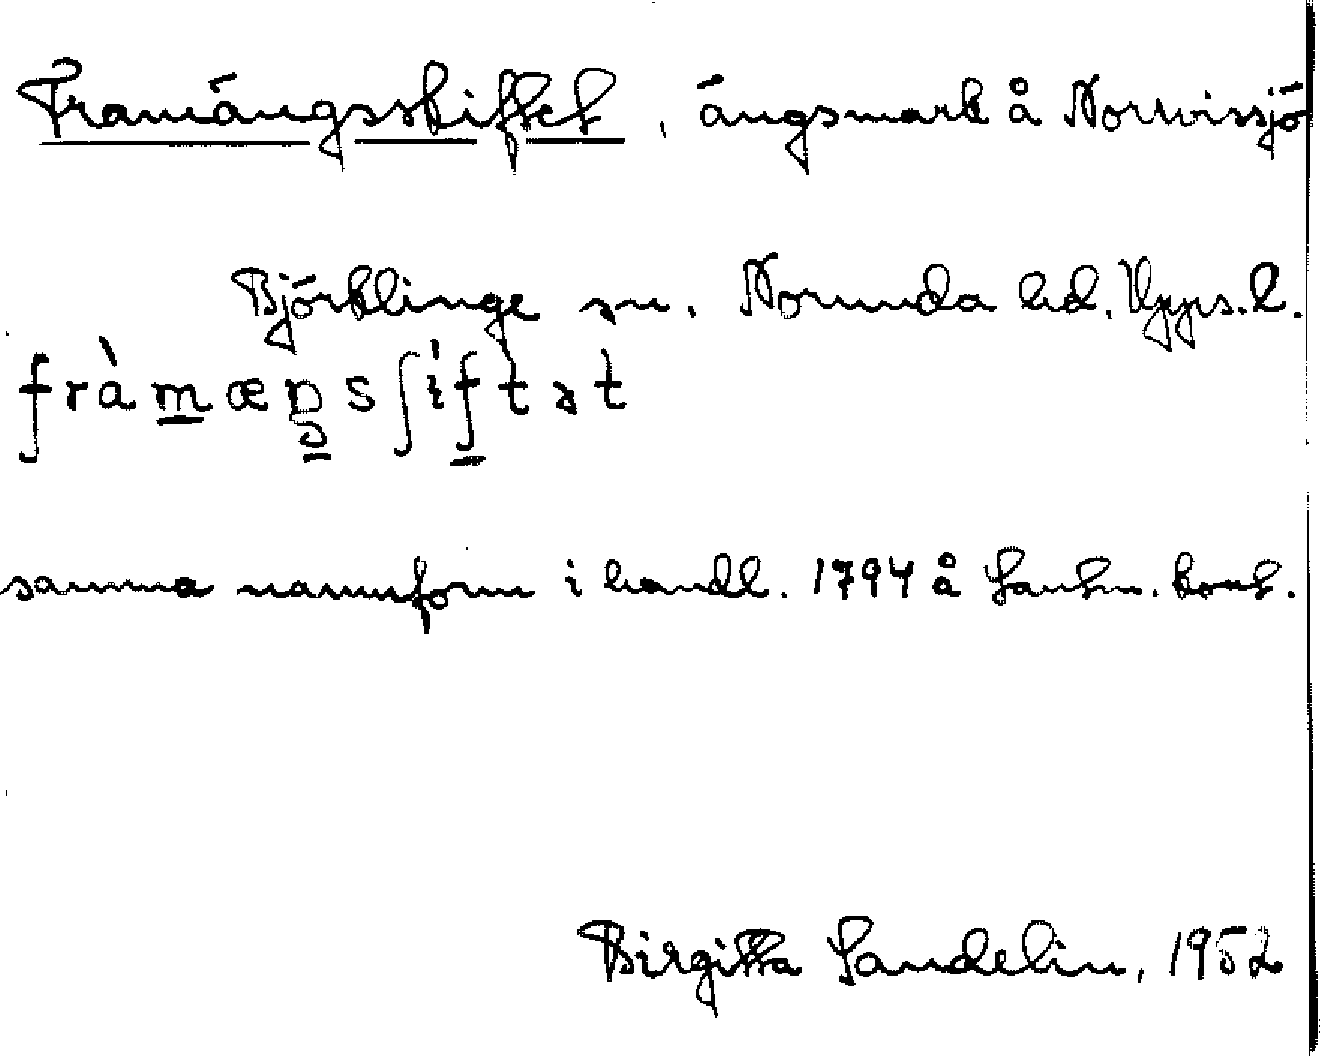 Framängsskiftet, ängsmark å Norrvissjö
Björklinge sn. Norunda hd. Upps. l.
fràmæŋsʃìftət
samma namnform i handl. 1794 å Lantm. kont.
Birgitta Sandelin, 1952